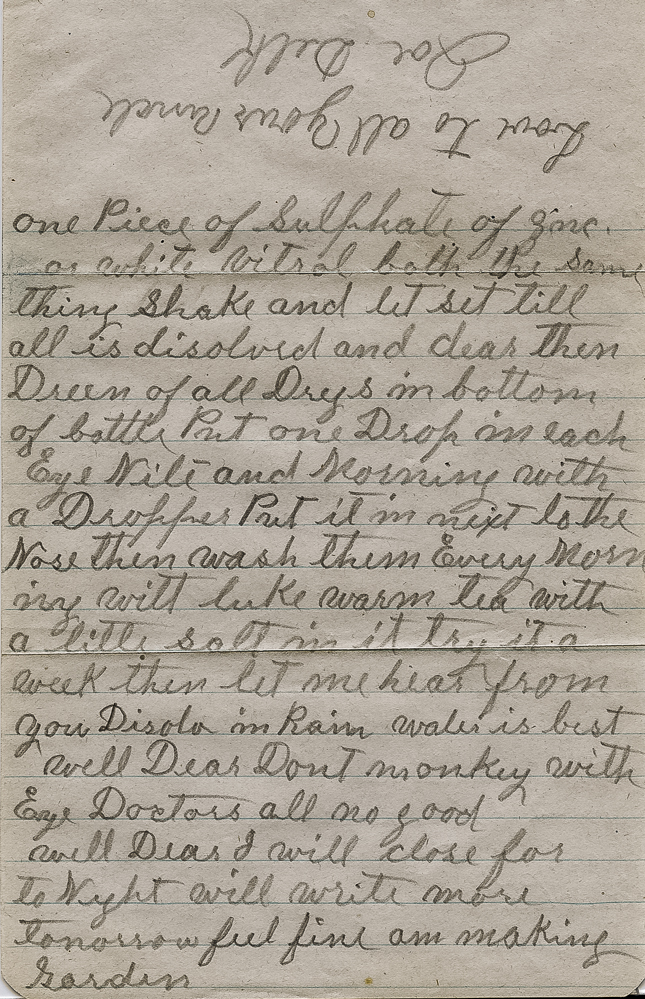 one Piece of Sulphate of Zinc.
or white Vitrol both the same
thing Shake and let set till
all is disolved and clear then
Dreen of all Drgs in bottom
of bottle Put one Drop in each
Eye Nite and Morning with
a Dropper Put it in next to the
Nose then wash them Every Morn
ing witt luke warm tea with
a little salt in it try it a
week then let me hear from
you Disolv in Rain water is best
well Dear Dont monkey with
Eye Doctors all no good
well Dear I will close for
to Night will write more
tomorrow feel fine am making
Garden
Love to all your uncle
Delk